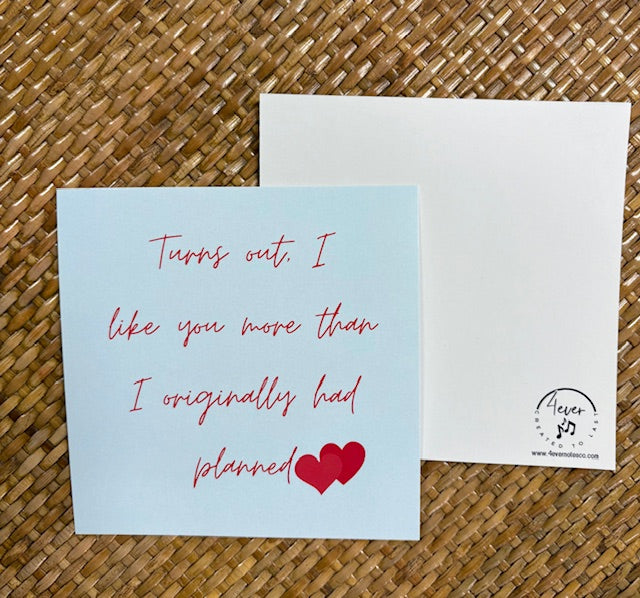 Turns out, I
like you more than
I originally had
planned
4ever
CREATED TO LAST
www.4evernotesco.com